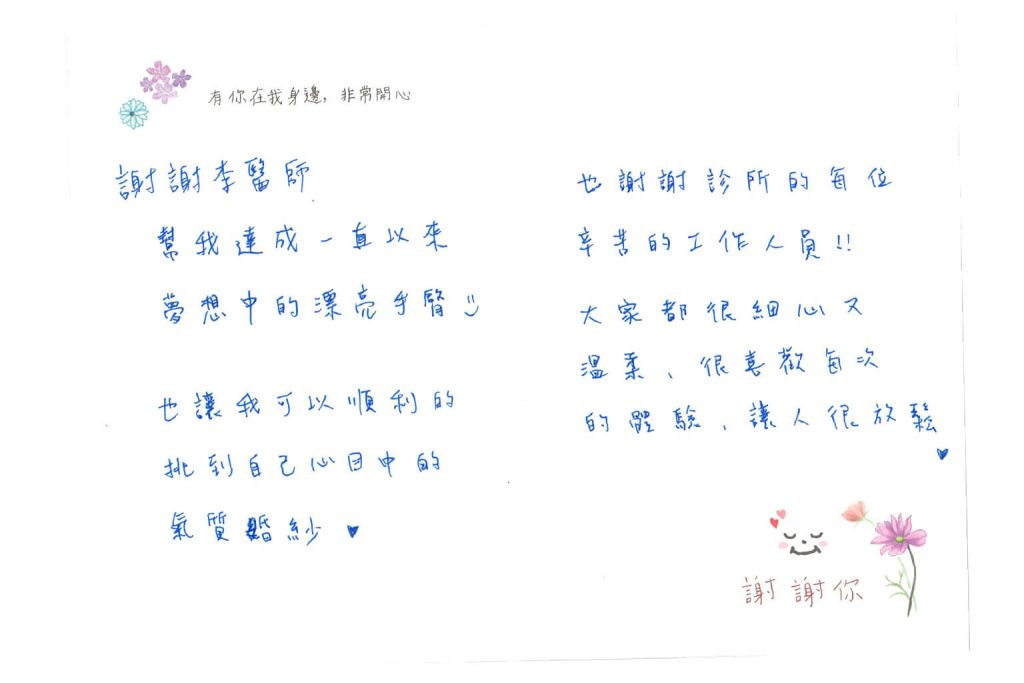 有你在我身邊，非常開心
謝謝李醫師
幫我達成一直以來
夢想中的漂亮手臂
也讓我可以順利的
挑到自己心目中的
氣質婚紗♥
也謝謝診所的每位
辛苦的工作人員!!
大家都很細心又
溫柔、很喜歡每次
的體驗，讓人很放鬆
♥
謝謝你